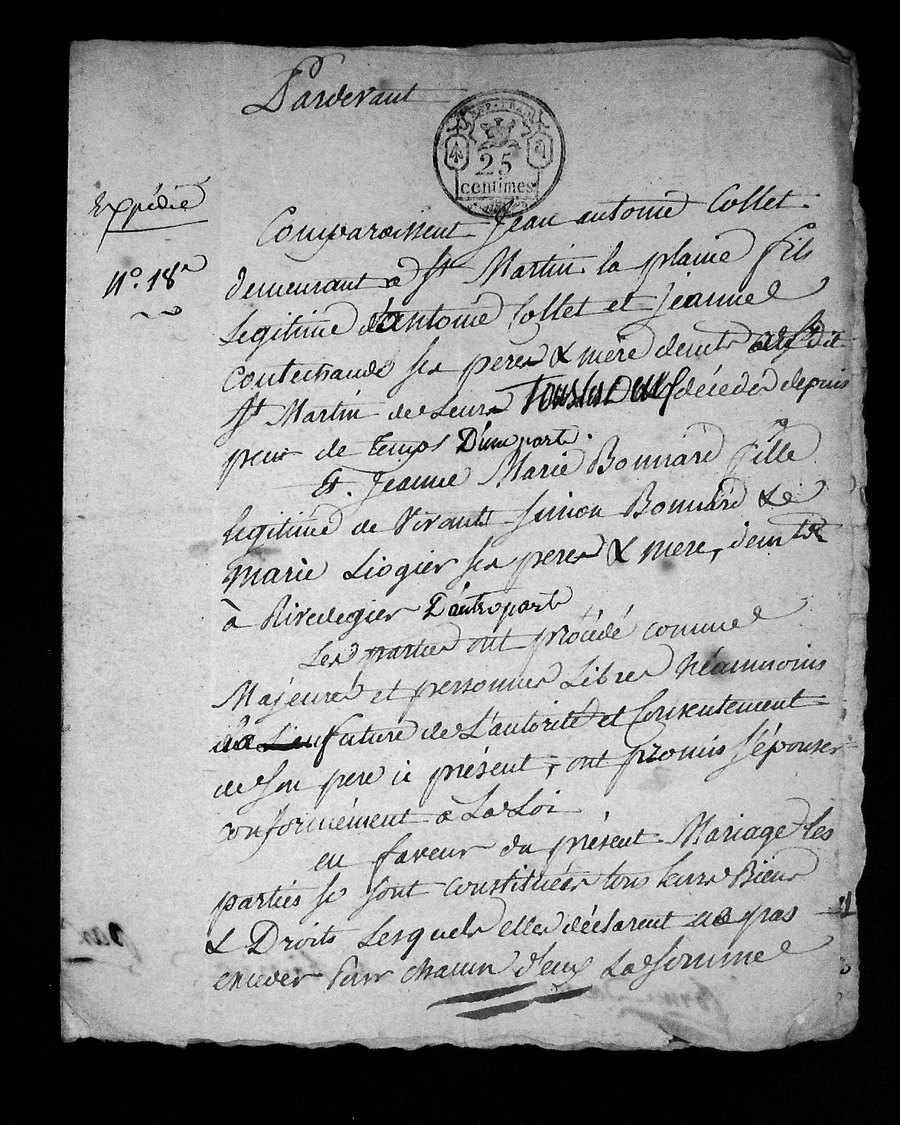 Pardevant
REP. FRA.
25
centimes
Expédié
N°. 18
Comparoissent Jean antoine Collet
demeurant a St Martin la plaine fils
Legitime d'antoine Collet et Jeanne
Coutechaude ses peres & mère demts
St Martin de Leurs tous deux décédés depuis
peu de temps D'une part.
Et Jeanne Marie Bonnard fille
legitime de Vivants Simon Bonnard & de
Marie Liogier ses peres & mere, demts
à Rivedegier D'autre part
Les parties ont procédé comme
Majeures et personnes Libres néanmoins
La future de L'autorité et Consentement
de Son pere ici présent, ont promis S'épouser
conformément a La Loi.
en faveur du présent Mariage les
parties se sont constituées tous leurs Biens
& Droits Lesquels elles déclarent pas
exceder pour chacun d'eux La Somme